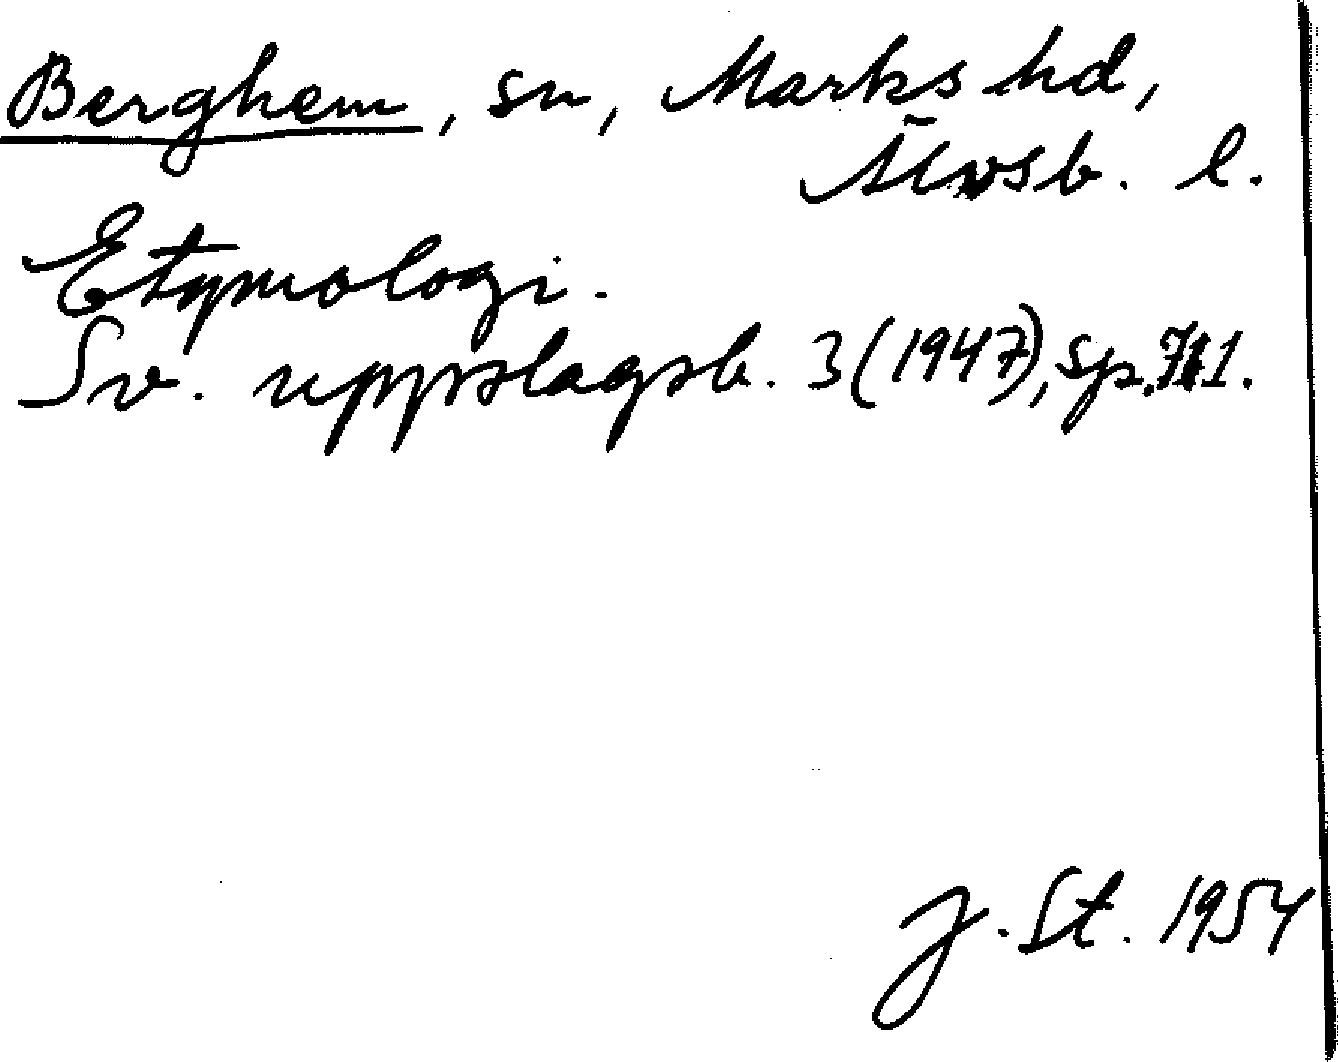 Berghem, sn, Marks hd,
Älvsb. l.
Etymologi.
Sv. uppslagsb. 3 (1947), sp. 711.
J. St. 1954